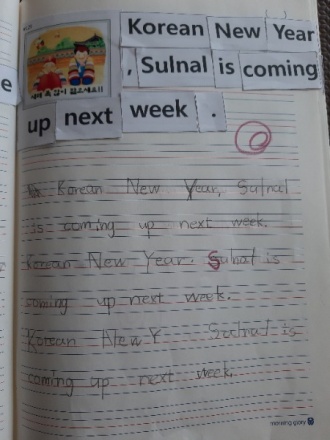 Korean New Year
, Sulnal is coming
e
새해 복 많이 받으세요!!
up next week .
Korean New Year, Sulnal
is coming up next week.
Korean New Year. Sulnal is
coming up next week.
Korean New Y Sulnal is
coming up next week.
morning glory